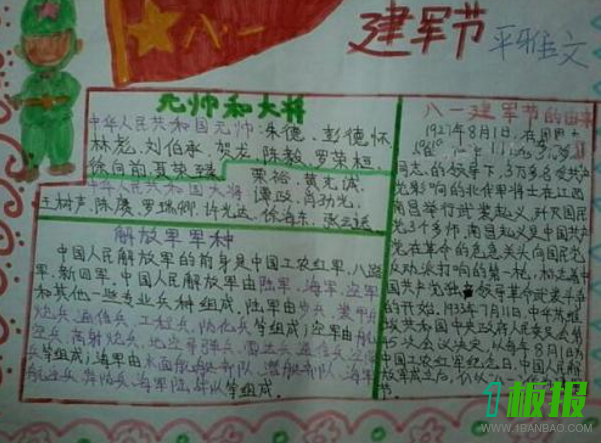 八一
建军节
平雅文
元帅和大将
中华人民共和国元帅:朱德、彭德怀
林彪、刘伯承、贺龙、陈毅、罗荣桓、
徐向前、聂荣臻
中华人民共和国大将:粟裕、黄克诚、
谭政、肖劲光、
王树声、陈赓、罗瑞卿、许光达、徐海东、张云逸
解放军军种
中国人民解放军的前身是中国工农红军、八路
军、新四军。中国人民解放军由陆军、海军、空军
和其他一些专业兵种组成。陆军由步兵、装甲兵
炮兵、通信兵、工程兵、防化兵等组成;空军由航
空兵、高射炮兵、地空导弹兵、雷达兵、通信兵、空降
等组成;海军由水面舰艇部队、潜艇部队、海军
航空兵、岸防兵、海军陆战队等组成.
八一建军节的由来
1927年8月1日,在周恩
同志的领导下,3万多名受共产
党影响的北伐军将士在江西
南昌举行武装起义,歼灭国民
党3个多师,南昌起义是中国共产
党在革命的危急关头向国民党
反动派打响的第一枪,标志着中
国共产党独立领导革命武装斗争
的开始。1933年7月11日,中华苏维
埃共和国中央政府人民委员会第
45次会议决定,以每年8月1日为
中国工农红军纪念日。中国人民解
放军成立后,
节.
板报
WWW.1BANBAO.COM